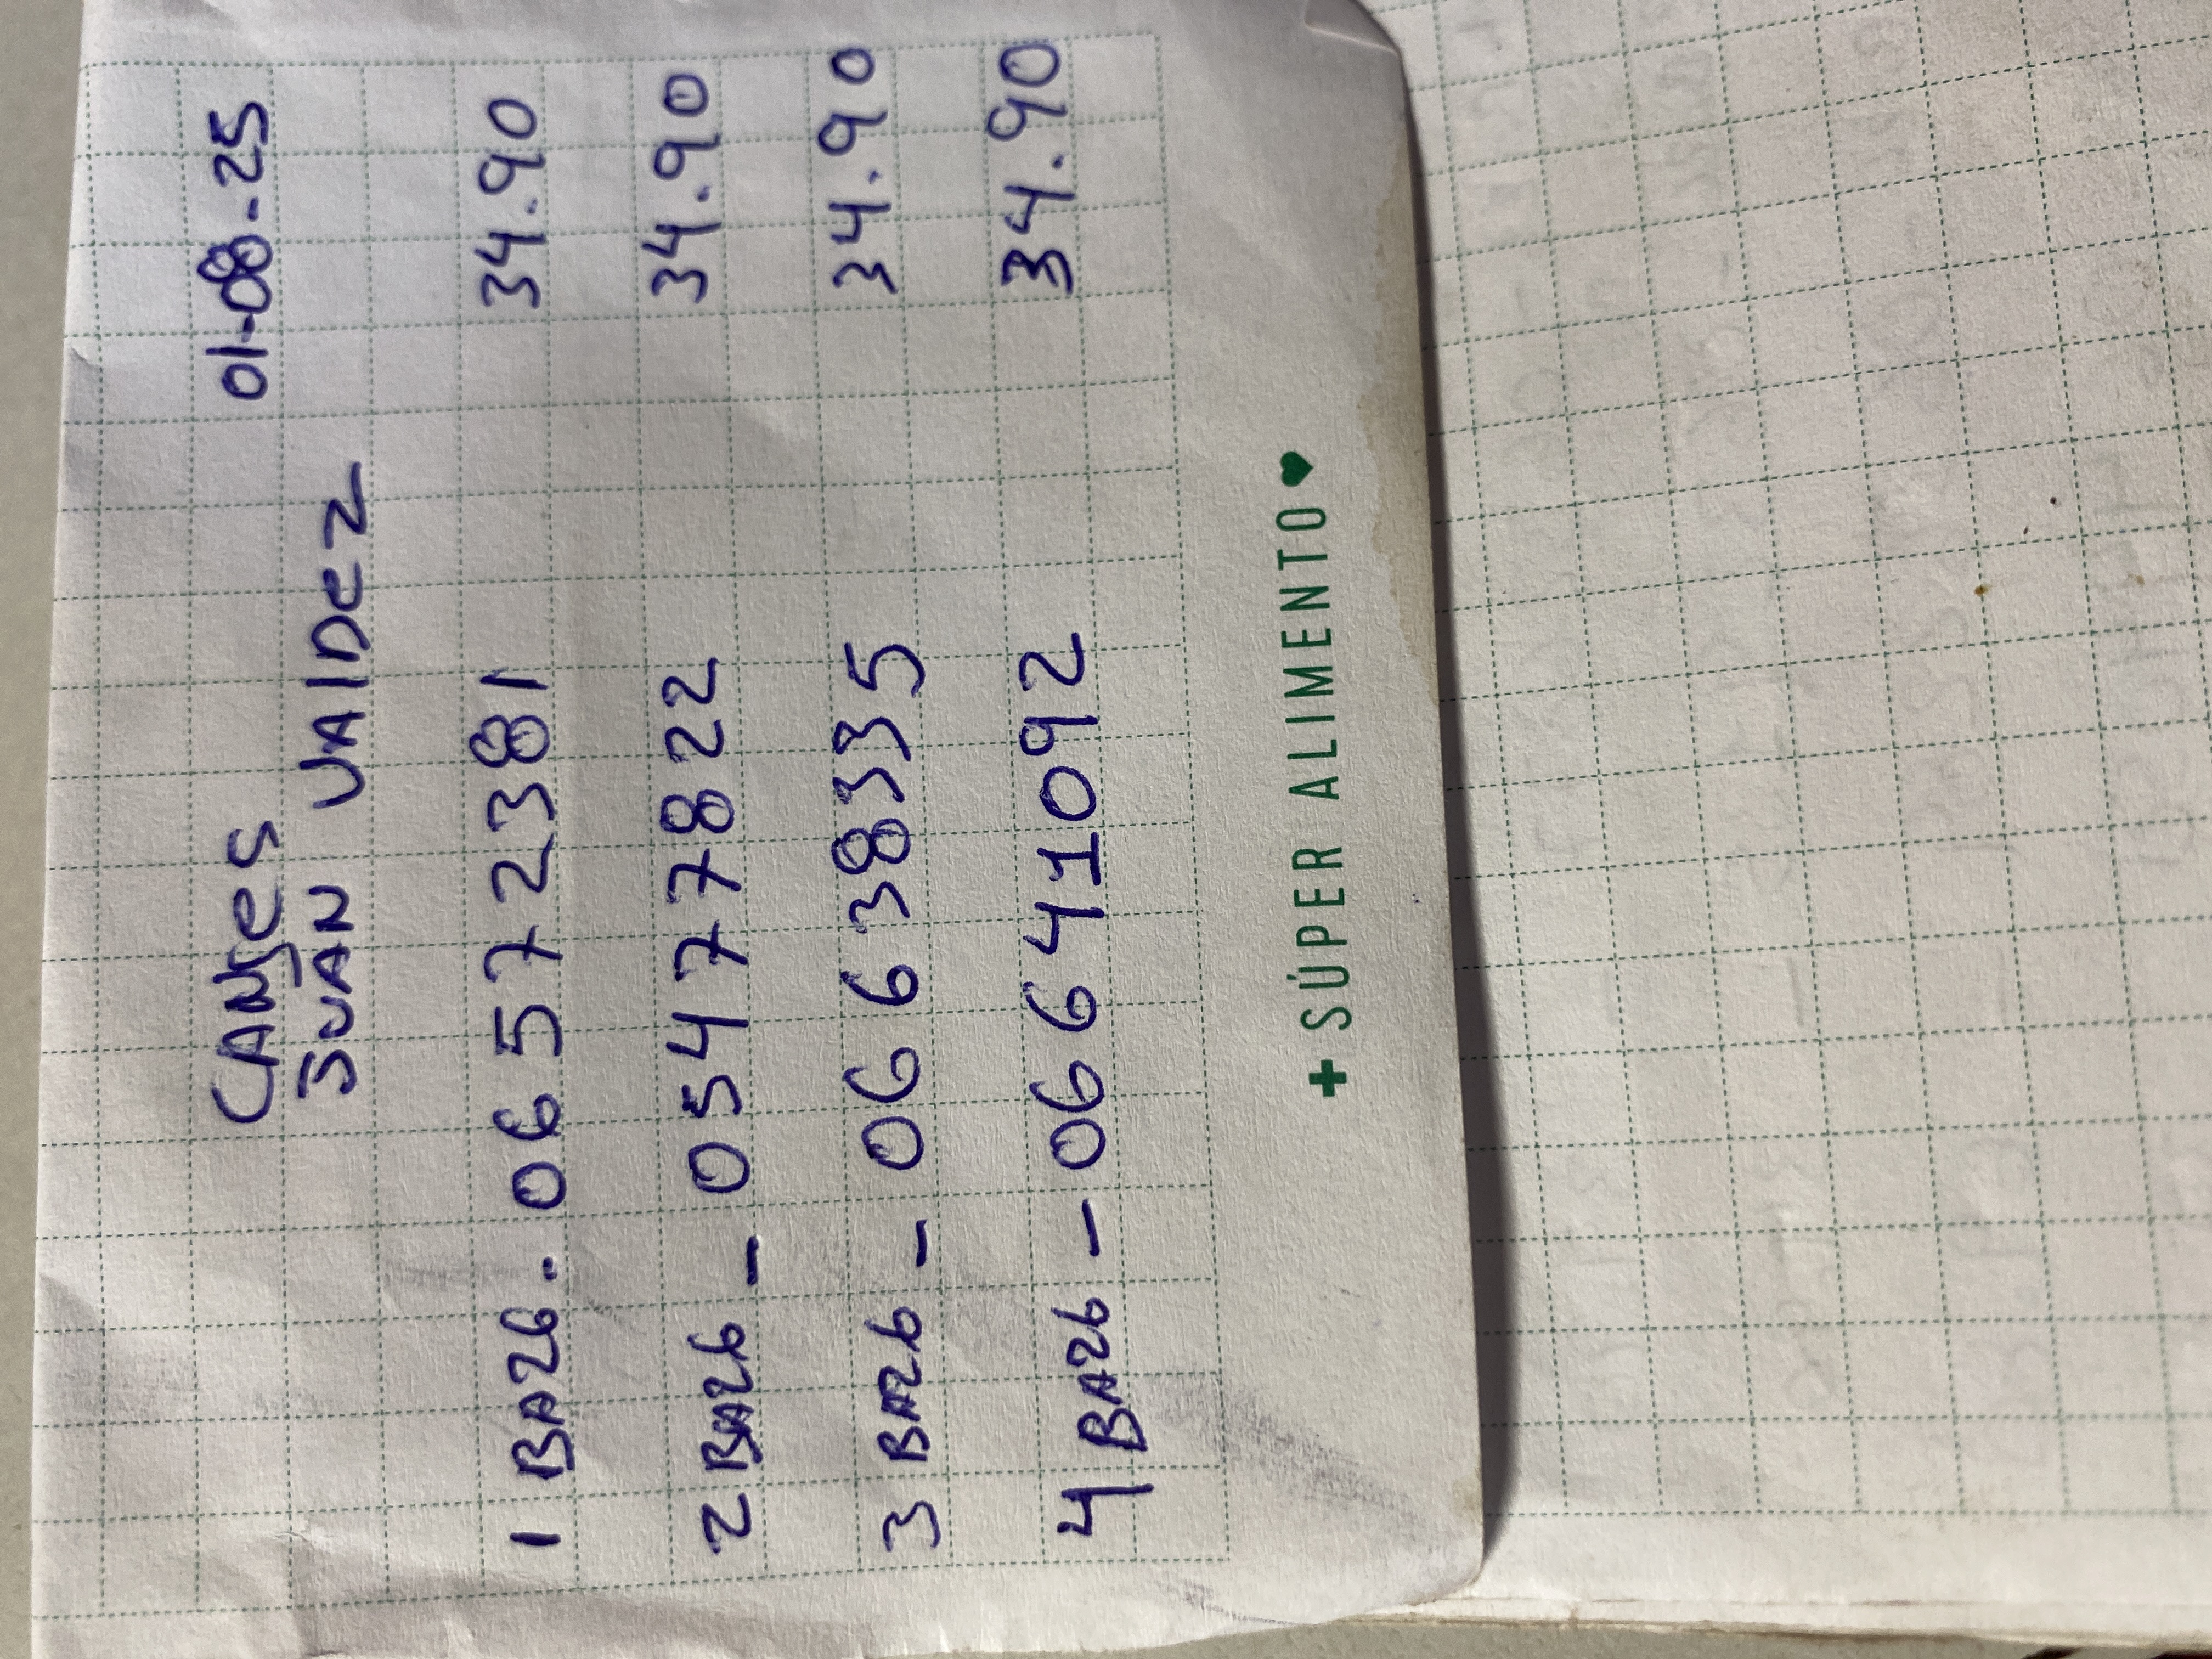 CANJES 01-08-25
JUAN VALDEZ
1 BA26. 06572381 34.90
2 BA26 - 05477822 34.90
3 BA26 - 06638335 34.90
4 BA26 - 06641092 34.90
+ SÚPER ALIMENTO ♥